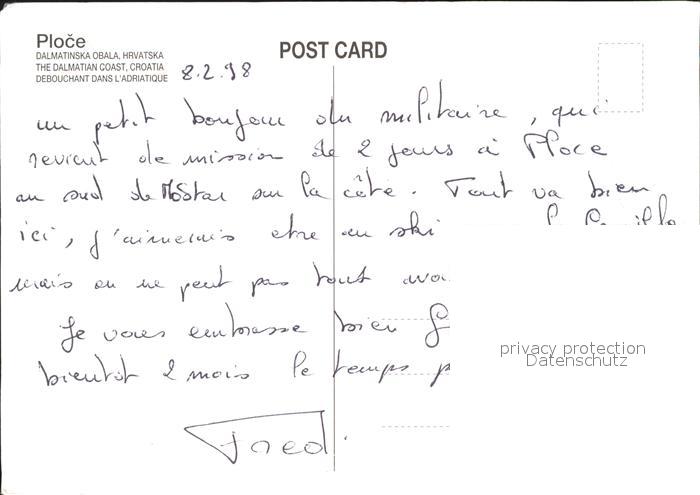 Ploče
DALMATINSKA OBALA, HRVATSKA
THE DALMATIAN COAST, CROATIA
DEBOUCHANT DANS L'ADRIATIQUE
8.2.98
POST CARD
un petit bonjour du militaire, qui
revient de mission de 2 jours à Ploce
au sud de Mostar sur la côte. Tout va bien
ici, j'aimerais etre au ski
mais on ne peut pas tout
Je vous embrasse bien
bientôt 2 mois le temps
Fred.
privacy protection
Datenschutz